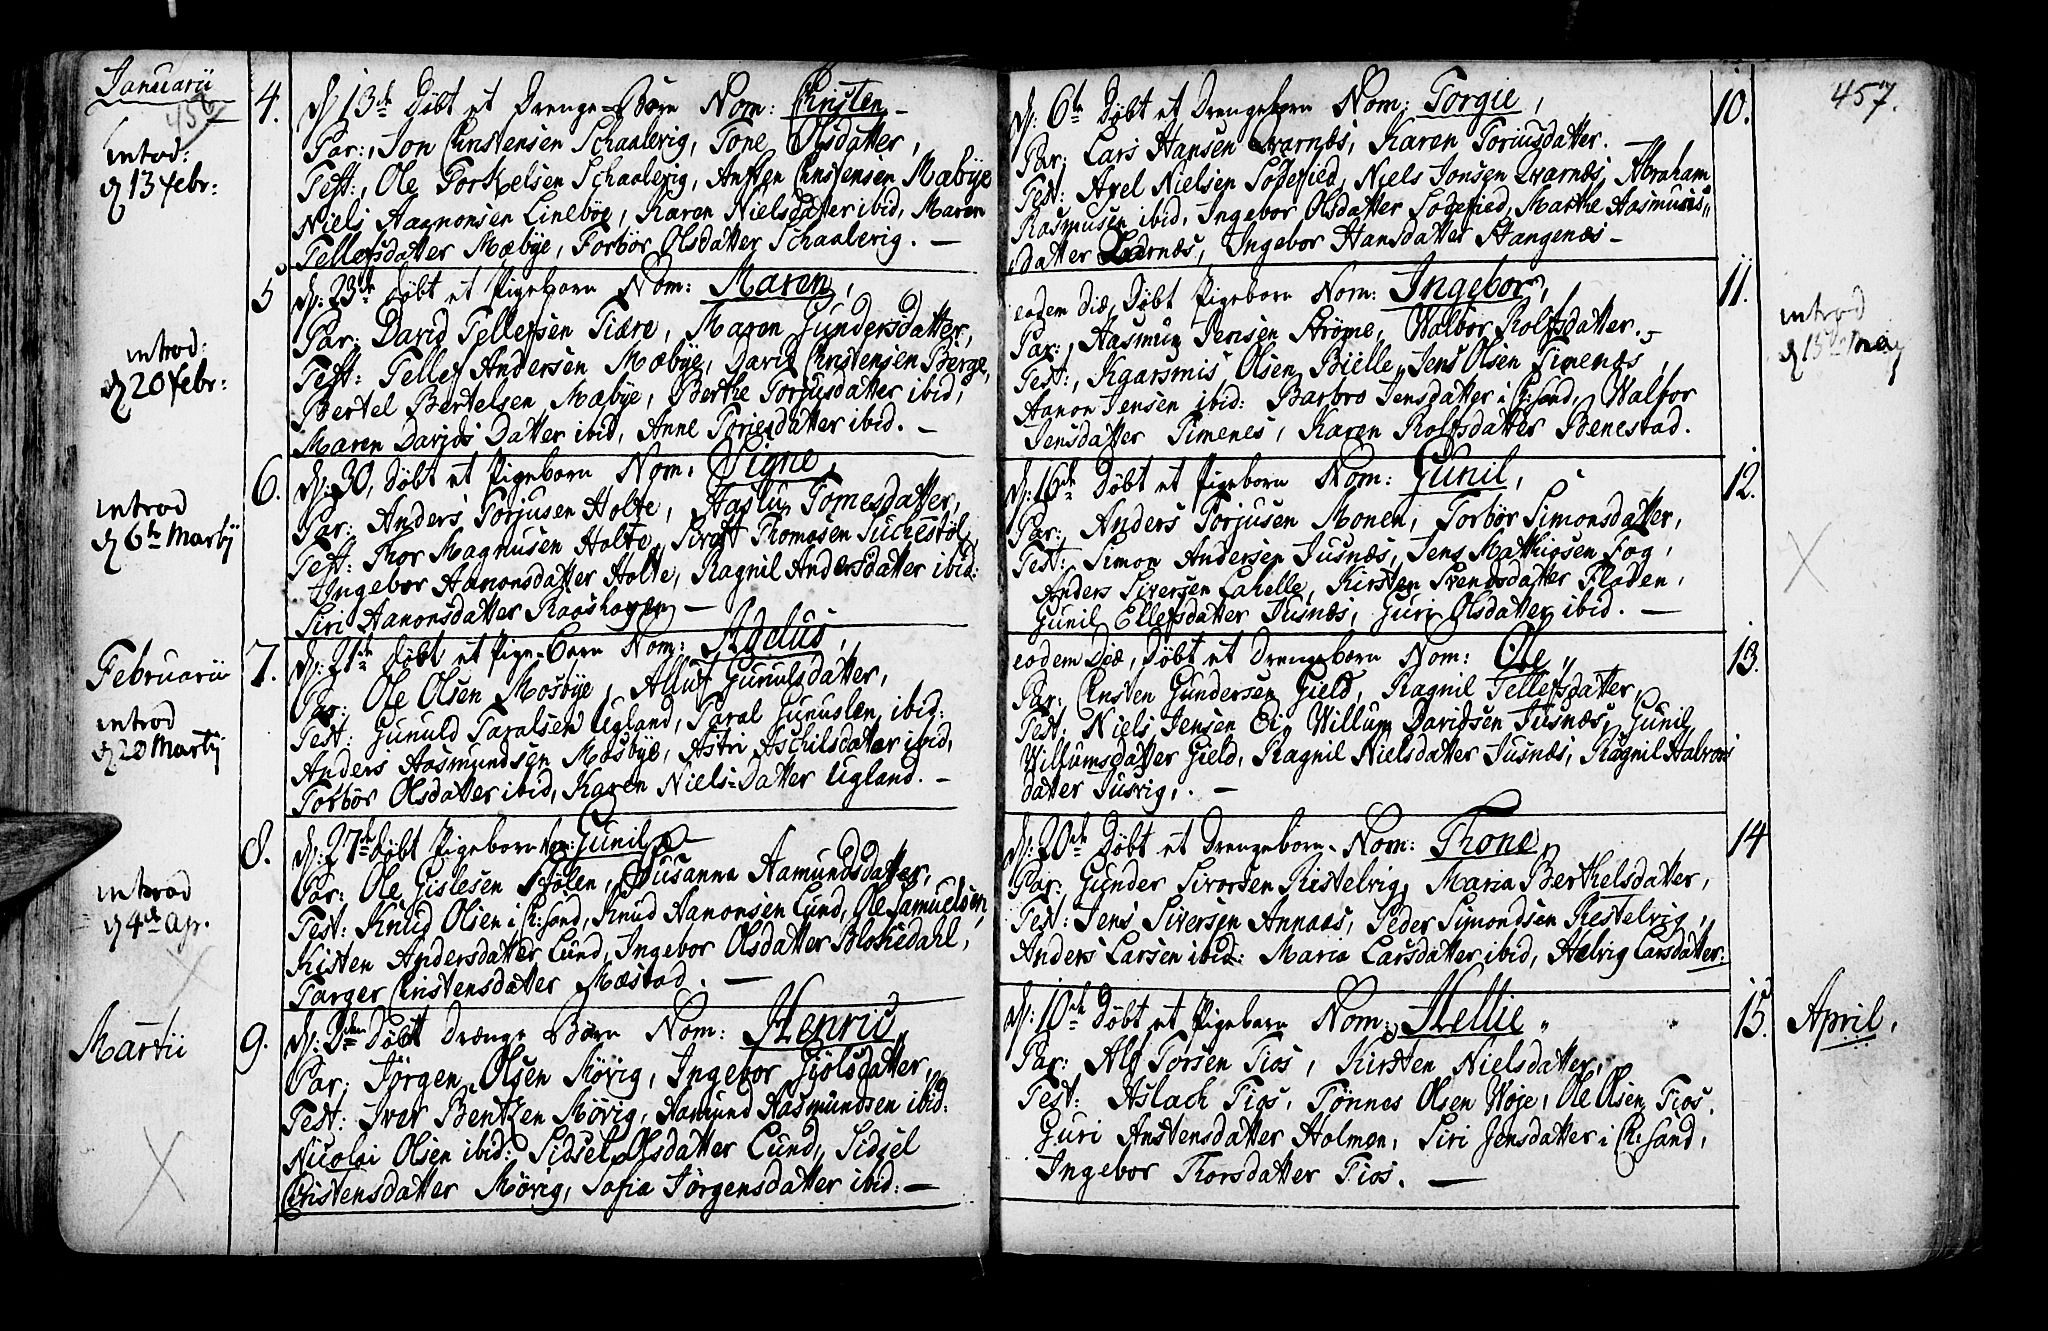 Januarii
456
4.
introd:
d 13 febr:
D. 13de Døbt et Drenge-Børn Nom: Christen
Par:, Jon Christensen Schaalevig, Tone Olsdatter,
Test:, Ole Torkelsen Schaalevig, Ansten Christensen Mæbye
Niels Aagnonsen Linebøe, Karen Nielsdatter ibid, Maren
Tellefsdatter Mæbye, Torbør Olsdatter Schaalevig. —
5
introd:
d 20 febr:
D: 23de Døbt et Pigebørn Nom: Maren,
Par: David Tellefsen Tiære, Maren Gundersdatter,
Test: Tellef Andersen Mæbye, David Christensen Berge,
Bertel Bertelsen Mæbye, Berthe Torjusdatter ibid,
Maren Davids Datter ibid, Anne Toriesdatter ibid. —
6.
introd
d 6te Martij
D: 30, Døbt et Pigeborn Nom: Signe,
Par: Anders Torjusen Holte, Aaslu Tomesdatter,
Test: Thor Magnusen Holte, Sivert Thomosen Suchestøl,
Ingebor Aanonsdatter Holte, Ragnil Andersdatter ibid:
Siri Aanonsdatter Raashagen —
Februarii
7.
introd
d 20 Martij
D: 21de Døbt et Pige-Børn Nom: Adelus,
Par: Ole Olsen Mosbye, Alluf Gunulsdatter,
Test: Gunuld Taralsen Ugland, Taral Gunuslen ibid:
Anders Aasmundsen Mosbye, Astri Aschilsdatter ibid,
Torbør Olsdatter ibid, Karen Niels-Datter Ugland. —
8.
introd
d 4de Apr.
D: 27de Døbt Pigeborn Nom: Gunil
Par: Ole Gislesen Stølen, Susanna Aamundsdatter,
Test: Knud Olsen i Ch: sand, Knud Aanonsen Lund, Ole Samuelsen,
Kisten Andersdatter Lund, Ingebor Olsdatter Bloksdahl,
Targer Christensdatter Mæstad. —
Martii
9.
D: 3den Døbt Drænge Børn Nom: Henric,
Par: Jörgen Olsen Kövig, Ingebor Giölsdatter,
Test: Iver Bentzen Mövig, Aamund Aasmundsen ibid:
Nicolai Olsen ibid: Sidsel Olsdatter Lund, Sidsel
Christensdatter Mövig, Sofia Jörgensdatter ibid: —
457.
10.
D: 6te Døbt et Drengeborn Nom: Torgie,
Par: Lars Hansen Qvarnæs, Karen Toriusdatter.
Test: Axel Nielsen Sødefied, Niels Jonsen Qvarnæs, Abraham
Rasmusen ibid, Ingebor Olsdatter Sødefied, Marthe Aasmunds„
datter Qvarnæs, Ingebor Hansdatter Stangenæs —
11.
introd
d 15de May
eodem Diæ, Døbt Pigeborn Nom: Ingebor,
Par:, Aasmun Jensen Strøme, Walbor Rolfsdatter.
Test:, Kgarsmis Olsen Bielle, Jens Olsen Timenæs,
Aanon Jensen ibid: Barbro Jensdatter i Ch: sand, Walbor
Jensdatter Timenes, Karen Rolfsdatter Benestad.
12.
D: 16de Døbt et Pigeborn Nom: Gunil,
Par:, Anders Torjusen Monen, Torbør Simonsdatter,
Test: Simon Andersen Jusnæs, Jens Mathiosen Fog,
Anders Siversen Lahelle, Kirsten Svendsdatter Floden,
Gunil Ellefsdatter Jusnæs, Guri Olsdatter ibid. —
13.
eodem Diæ, Døbt et Drengebørn Nom: Ole,,
Par:, Christen Gundersen Gield, Ragnil Tellefsdatter,
Test: Niels Jensen Eig, Willum Davidsen Jusnæs, Gunil
Willumsdatter Gield, Ragnil Nielsdatter Jusnæs, Ragnil Halvors
datter Jusvig,. —
14
D: 20de Døbt et Drengeborn. Nom: Thone,
Par:, Gunder Sivorsen Kistelvig, Maria Berthelsdatter,
Test: Jens Siversen Annaas, Peder Simondsen Kestelvig,,
Anders Larsen ibid: Maria Larsdatter ibid, Helvig Larsdatter:
15.
April.
D: 10de Døbt et Pigeborn Nom: Hellie,,
Par: Alf Torsen Tios, Kirsten Nielsdatter,
Test: Aslach Tios, Tönnes Olsen Woje, Ole Olsen Tios.
Guri Anstensdatter Holmen, Siri Jensdatter i Ch: sand,
Ingebor Thorsdatter Tios. —